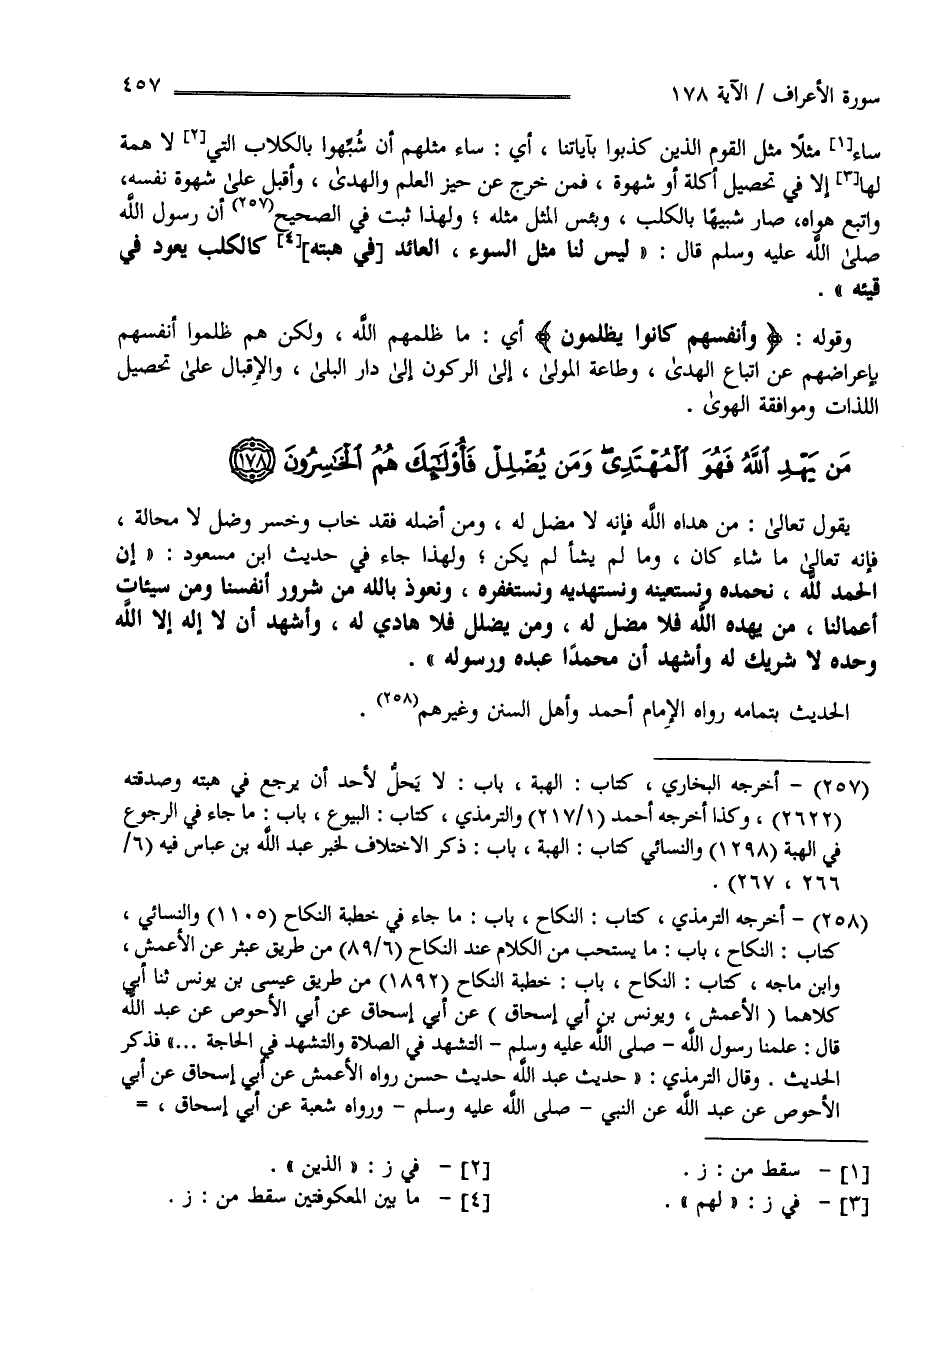 سورة الأعراف / الآية ١٧٨ ٤٥٧
ساء[١] مثلًا مثل القوم الذين كذبوا بآياتنا ، أي : ساء مثلهم أن شُبِّهوا بالكلاب التي[٢] لا همة
لها[٣] إلا في تحصيل أكلة أو شهوة ، فمن خرج عن حيز العلم والهدىٰ ، وأقبل علىٰ شهوة نفسه،
واتبع هواه، صار شبيهًا بالكلب ، وبئس المثل مثله ؛ ولهذا ثبت في الصحيح(٢٥٧) أن رسول اللَّه
صلىٰ اللَّه عليه وسلم قال : « ليس لنا مثل السوء ، العائد [في هبته][٤] كالكلب يعود في
قيئه » .
وقوله : ﴿ وأنفسهم كانوا يظلمون ﴾ أي : ما ظلمهم اللَّه ، ولكن هم ظلموا أنفسهم
بإعراضهم عن اتباع الهدىٰ ، وطاعة المولىٰ ، إلىٰ الركون إلىٰ دار البلىٰ ، والإقبال علىٰ تحصيل
اللذات وموافقة الهوىٰ .
مَن يَهْدِ ٱللَّهُ فَهُوَ ٱلْمُهْتَدِىۖ وَمَن يُضْلِلْ فَأُو۟لَٰٓئِكَ هُمُ ٱلْخَٰسِرُونَ ١٧٨
يقول تعالىٰ : من هداه اللَّه فإنه لا مضل له ، ومن أضله فقد خاب وخسر وضل لا محالة ،
فإنه تعالىٰ ما شاء كان ، وما لم يشأ لم يكن ؛ ولهذا جاء في حديث ابن مسعود : « إن
الحمد للَّه ، نحمده ونستعينه ونستهديه ونستغفره ، ونعوذ بالله من شرور أنفسنا ومن سيئات
أعمالنا ، من يهده اللَّه فلا مضل له ، ومن يضلل فلا هادي له ، وأشهد أن لا إله إلا اللَّه
وحده لا شريك له وأشهد أن محمدًا عبده ورسوله » .
الحديث بتمامه رواه الإمام أحمد وأهل السنن وغيرهم(٢٥٨) .
(٢٥٧) – أخرجه البخاري ، كتاب : الهبة ، باب : لا يَحلُّ لأحد أن يرجع في هبته وصدقته
(٢٦٢٢) ، وكذا أخرجه أحمد (٢١٧/١) والترمذي ، كتاب : البيوع ، باب : ما جاء في الرجوع
في الهبة (١٢٩٨) والنسائي كتاب : الهبة ، باب : ذكر الاختلاف لخبر عبد اللَّه بن عباس فيه (٦/
٢٦٦ ، ٢٦٧) .
(٢٥٨) – أخرجه الترمذي ، كتاب : النكاح ، باب : ما جاء في خطبة النكاح (١١٠٥) والنسائي ،
كتاب : النكاح ، باب : ما يستحب من الكلام عند النكاح (٨٩/٦) من طريق عبثر عن الأعمش ،
وابن ماجه ، كتاب : النكاح ، باب : خطبة النكاح (١٨٩٢) من طريق عيسى بن يونس ثنا أبي
كلاهما ( الأعمش ، ويونس بن أبي إسحاق ) عن أبي إسحاق عن أبي الأحوص عن عبد اللَّه
قال : علمنا رسول اللَّه – صلى اللَّه عليه وسلم – التشهد في الصلاة والتشهد في الحاجة ...» فذكر
الحديث . وقال الترمذي : « حديث عبد اللَّه حديث حسن رواه الأعمش عن أبي إسحاق عن أبي
الأحوص عن عبد اللَّه عن النبي – صلى اللَّه عليه وسلم – ورواه شعبة عن أبي إسحاق ، =
[١] – سقط من : ز . [٢] – في ز : « الذين » .
[٣] – في ز : « لهم » . [٤] – ما بين المعكوفتين سقط من : ز .